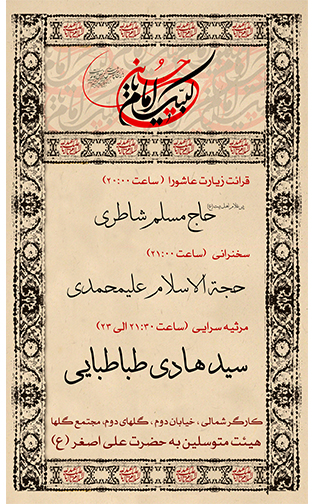 لبیک یا امام حسین
قرائت زیارت عاشورا (ساعت ۲۰:۰۰)
حاج مسلم شاطری
سخنرانی (ساعت ۲۱:۰۰)
حجة الاسلام علیمحمدی
مرثیه سرایی (ساعت ۲۱:۳۰ الی ۲۳)
سید هادی طباطبایی
کارگر شمالی ، خیابان دوم ، گلهای دوم، مجتمع گلها
هیئت متوسلین به حضرت علی اصغر (ع)